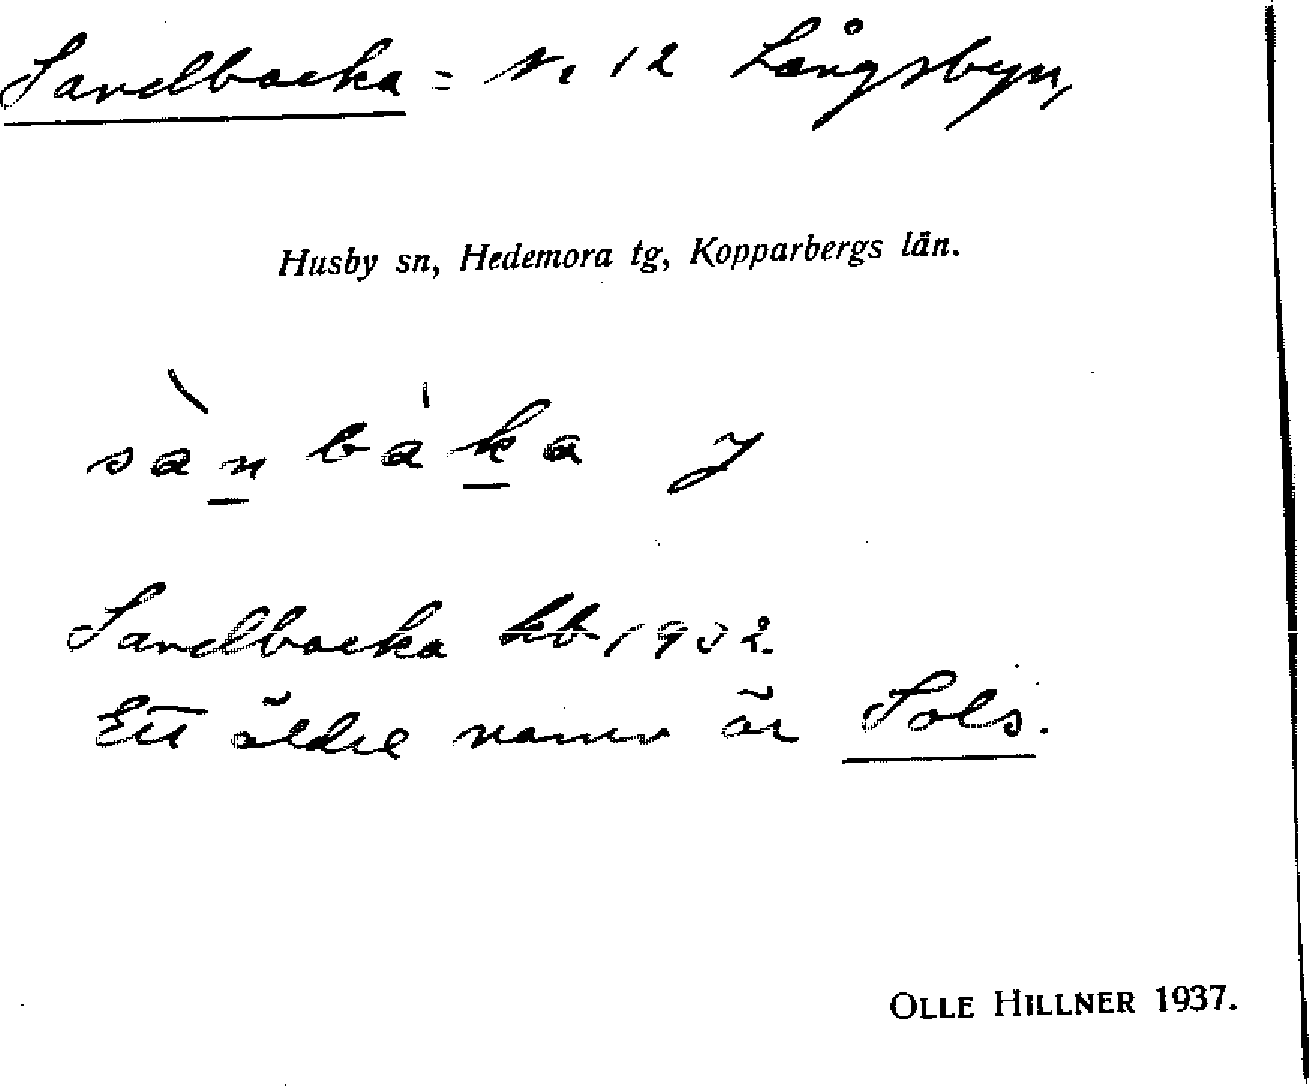 Sandbacka = N. 12 Långsbyn,
Husby sn, Hedemora tg, Kopparbergs län.
sàn báka
Sandbacka kb 1932.
Ett äldre namn är Sols.
OLLE HILLNER 1937.